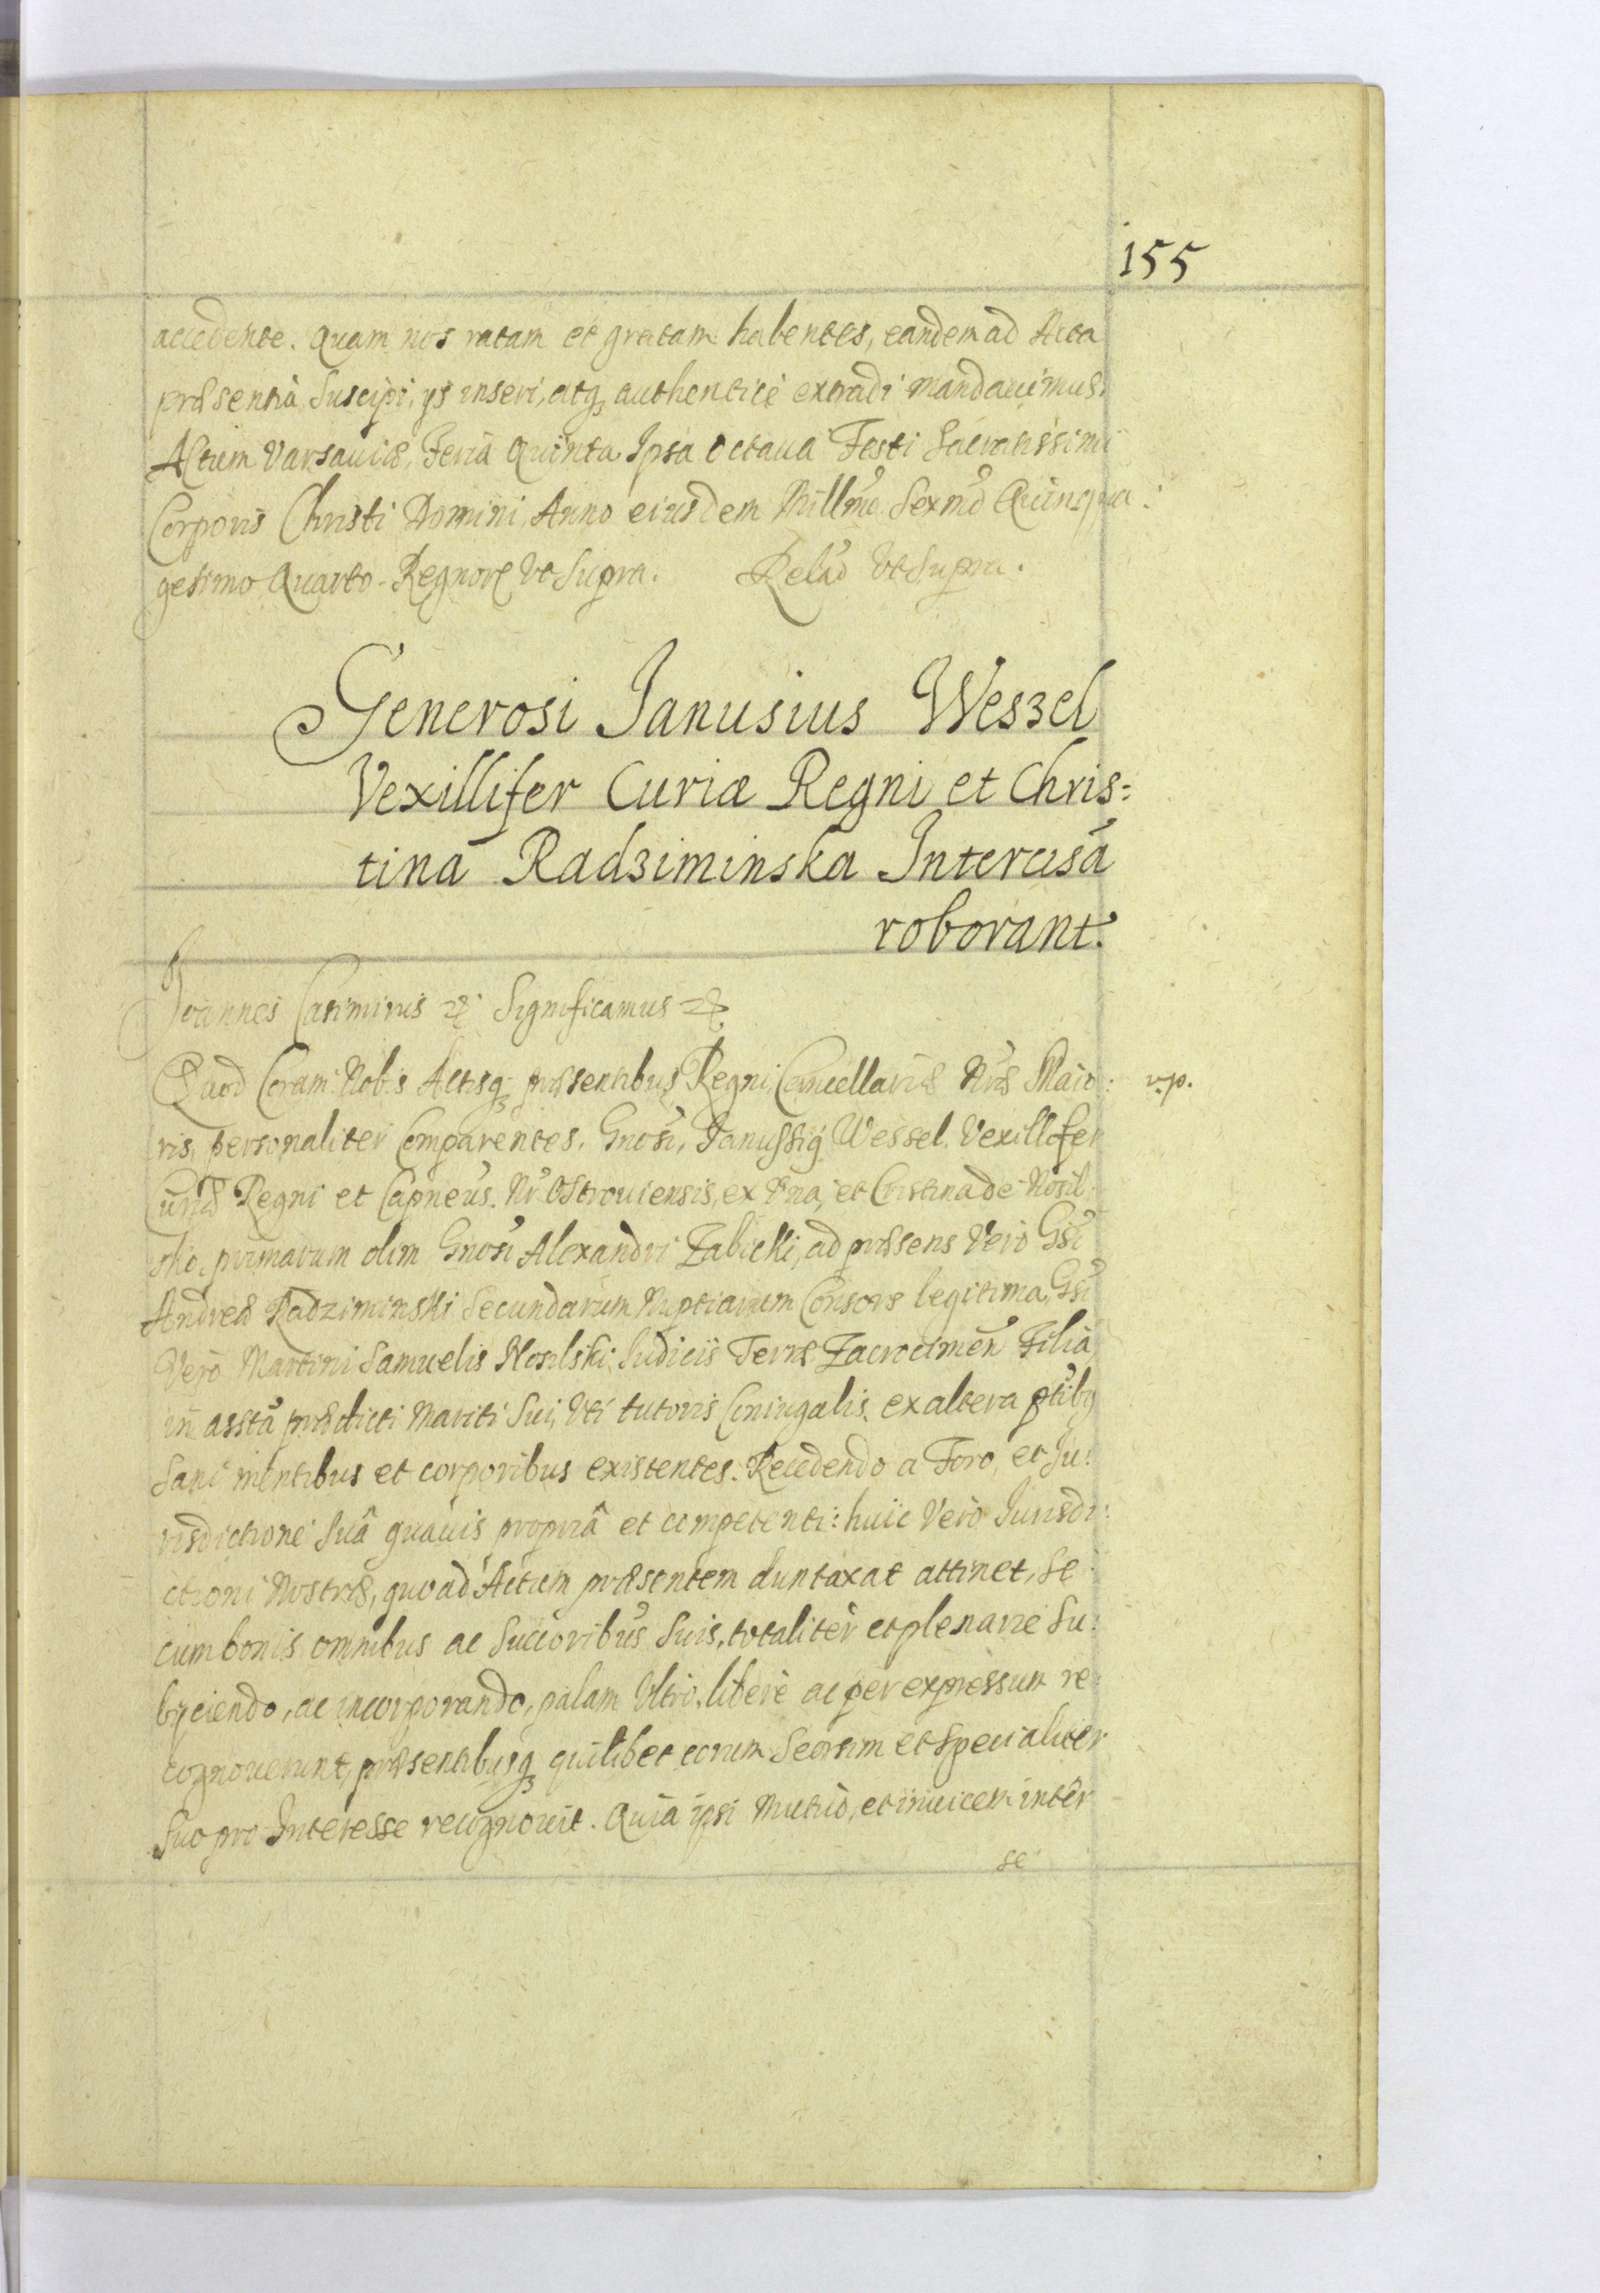 155
accedente. Quam nos ratam et gratam habentes, eandem ad Acta
præsentia Suscipi, ijs inseri, atq authenticè extradi mandauimus.
Actum Varsauiæ, Feria Quinta Ipsa Octaua Festi Sacratissimi
Corporis Christi Domini, Anno eiusdem Millmo Sexmo Quinqua:
gesimo Quarto. Regnor Vt Supra. Relao Vt Supra.
Generosi Janusius Weszel
Vexillifer Curiæ Regni et Chris:
tina Radziminska Intercisā
roborant.
Joannes Casimirus Significamus
Quod Coram Nobis Actisq præsentibus Regni Cancellariæ Nræ Maio:
v.p.
ris, personaliter Comparentes, Gnosi, Janussiq Wessel. Vexillifer
Curiæ Regni et Capneus. Nr Ostrouiensis, ex Vna, et Cristina de Nosil
sko, primarum olim Gnosi Alexandri Zabicki, ad præsens Verò Gsi
Andreæ Radziminski Secundarum Nuptiarum Consors legitima, Gsi
Verò Martini Samuelis Nosilski, Iudicis Terræ Zacrocimen Filia
in asstā prædicti Mariti Sui, Vti tutoris Coniugalis, ex altera ptibq
Sani mentibus et corporibus existentes. Recedendo a Foro, et Ju:
risdictione Suâ quauis propriâ et competenti: huic Verò Jurisdi:
ctioni Nostræ, quoad Actum præsentem duntaxat attinet, Se
cum bonis omnibus ac Succoribus Suis, totaliter et plenarie Su:
bijciendo, ac incorporando, palam Vltrò, liberè ac per expressum re
cognouerunt, præsentibusq quilibet eorum Seorsim et Specialiter
Suo pro Interesse recognouit. Quia ipsi Mutuò, et inuicem inter
se